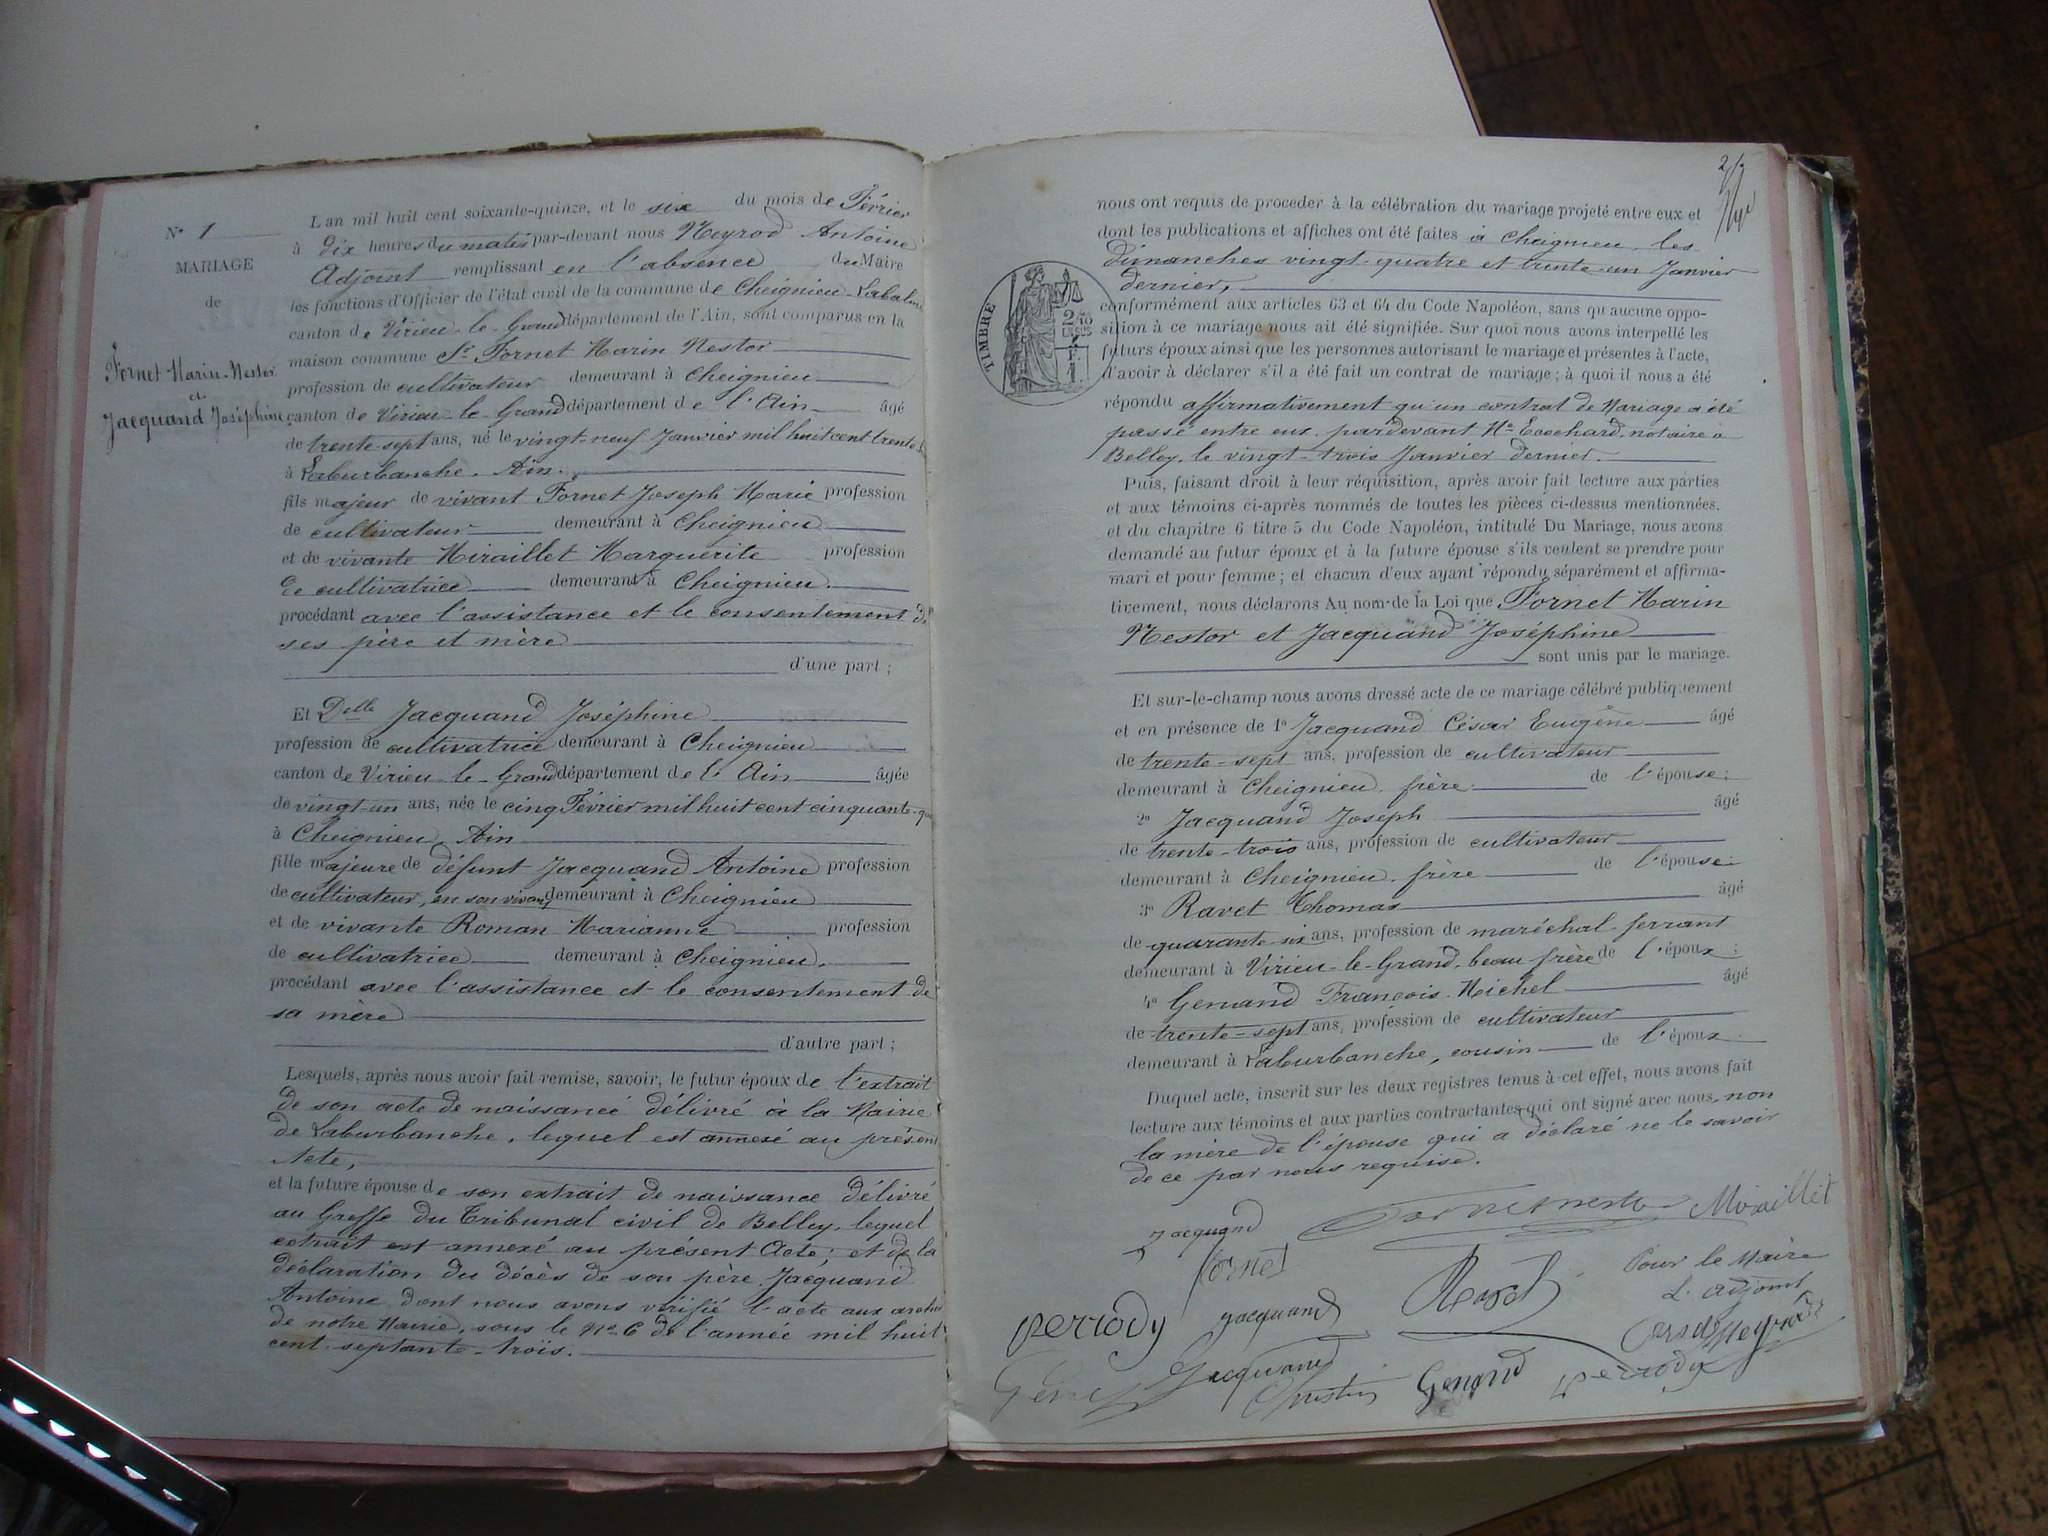 N° 1
MARIAGE
de
Fornet Marin-Nestor
et
Jacquand Joséphine
L an mil huit cent soixante-quinze, et le six du mois de Février
à dix heures du matin par-devant nous Neyrod Antoine
Adjoint remplissant en l'absence du Maire
les fonctions d'Officier de l'état civil de la commune de Cheignieu-Labalme
canton de Virieu-le-Grand département de l'Ain, sont comparus en la
maison commune Sr Fornet Marin Nestor
profession de cultivateur demeurant à Cheignieu
canton de Virieu-le-Grand département de l'Ain âgé
de trente-sept ans, né le vingt-neuf Janvier mil huit cent trente
à Laburbanche. Ain.
fils majeur de vivant Fornet Joseph Marie profession
de cultivateur demeurant à Cheignieu
et de vivante Miraillet Marguerite profession
de cultivatrice demeurant à Cheignieu.
procédant avec l'assistance et le consentement de
ses père et mère
d'une part ;
Et Delle Jacquand Joséphine
profession de cultivatrice demeurant à Cheignieu
canton de Virieu-le-Grand département de l'Ain âgée
de vingt-un ans, née le cinq Février mil huit cent cinquante-
à Cheignieu, Ain
fille majeure de défunt Jacquand Antoine profession
de cultivateur, en son vivant demeurant à Cheignieu
et de vivante Roman Marianne profession
de cultivatrice demeurant à Cheignieu.
procédant avec l'assistance et le consentement de
sa mère
d'autre part ;
Lesquels, après nous avoir fait remise, savoir, le futur époux de l'extrait
de son acte de naissance délivré à la Mairie
de Laburbanche, lequel est annexé au présent
Acte,
et la future épouse de son extrait de naissance délivré
au Greffe du Tribunal civil de Belley, lequel
extrait est annexé au présent Acte ; et de la
déclaration du décès de son père Jacquand
Antoine dont nous avons vérifié l'acte aux archives
de notre Mairie, sous le No 6 de l'année mil huit
cent septante-trois.
2/2
nous ont requis de proceder à la célébration du mariage projeté entre eux et
dont les publications et affiches ont été faites à Cheignieu, les
dimanches vingt-quatre et trente-un Janvier
dernier,
TIMBRE
conformément aux articles 63 et 64 du Code Napoléon, sans qu'aucune oppo-
sition à ce mariage nous ait été signifiée. Sur quoi nous avons interpellé les
futurs époux ainsi que les personnes autorisant le mariage et présentes à l'acte,
d'avoir à déclarer s'il a été fait un contrat de mariage ; à quoi il nous a été
répondu affirmativement qu'un contrat de Mariage a été
passé entre eux, pardevant Me notaire à
Belley, le vingt-trois Janvier dernier.
Puis, faisant droit à leur réquisition, après avoir fait lecture aux parties
et aux témoins ci-après nommés de toutes les pièces ci-dessus mentionnées,
et du chapitre 6 titre 5 du Code Napoléon, intitulé Du Mariage, nous avons
demandé au futur époux et à la future épouse s'ils veulent se prendre pour
mari et pour femme ; et chacun d'eux ayant répondu séparément et affirma-
tivement, nous déclarons Au nom de la Loi que Fornet Marin
Nestor et Jacquand Joséphine
sont unis par le mariage.
Et sur-le-champ nous avons dressé acte de ce mariage célébré publiquement
et en présence de 1° Jacquand César Eugène âgé
de trente-sept ans, profession de cultivateur
demeurant à Cheignieu, frère de l'épouse ;
2° Jacquand Joseph âgé
de trente-trois ans, profession de cultivateur
demeurant à Cheignieu, frère de l'épouse
3° Ravet Thomas âgé
de quarante-six ans, profession de maréchal-ferrant
demeurant à Virieu-le-Grand, beau frère de l'époux ;
4° Genand François-Michel âgé
de trente-sept ans, profession de cultivateur
demeurant à Laburbanche, cousin de l'époux
Duquel acte, inscrit sur les deux registres tenus à cet effet, nous avons fait
lecture aux témoins et aux parties contractantes qui ont signé avec nous, non
la mère de l'épouse qui a déclaré ne le savoir
de ce par nous requise.
Jacquand Miraillet
Fornet Pour le Maire
L'adjoint
perrody Jacquand Ravet Neyrod
Jacquand Genand perrody